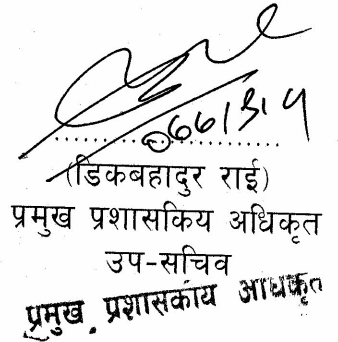 (डिकबहादुर राई)
प्रमुख प्रशासकिय अधिकृत
उप-सचिव
प्रमुख प्रशासकीय अधिकृत